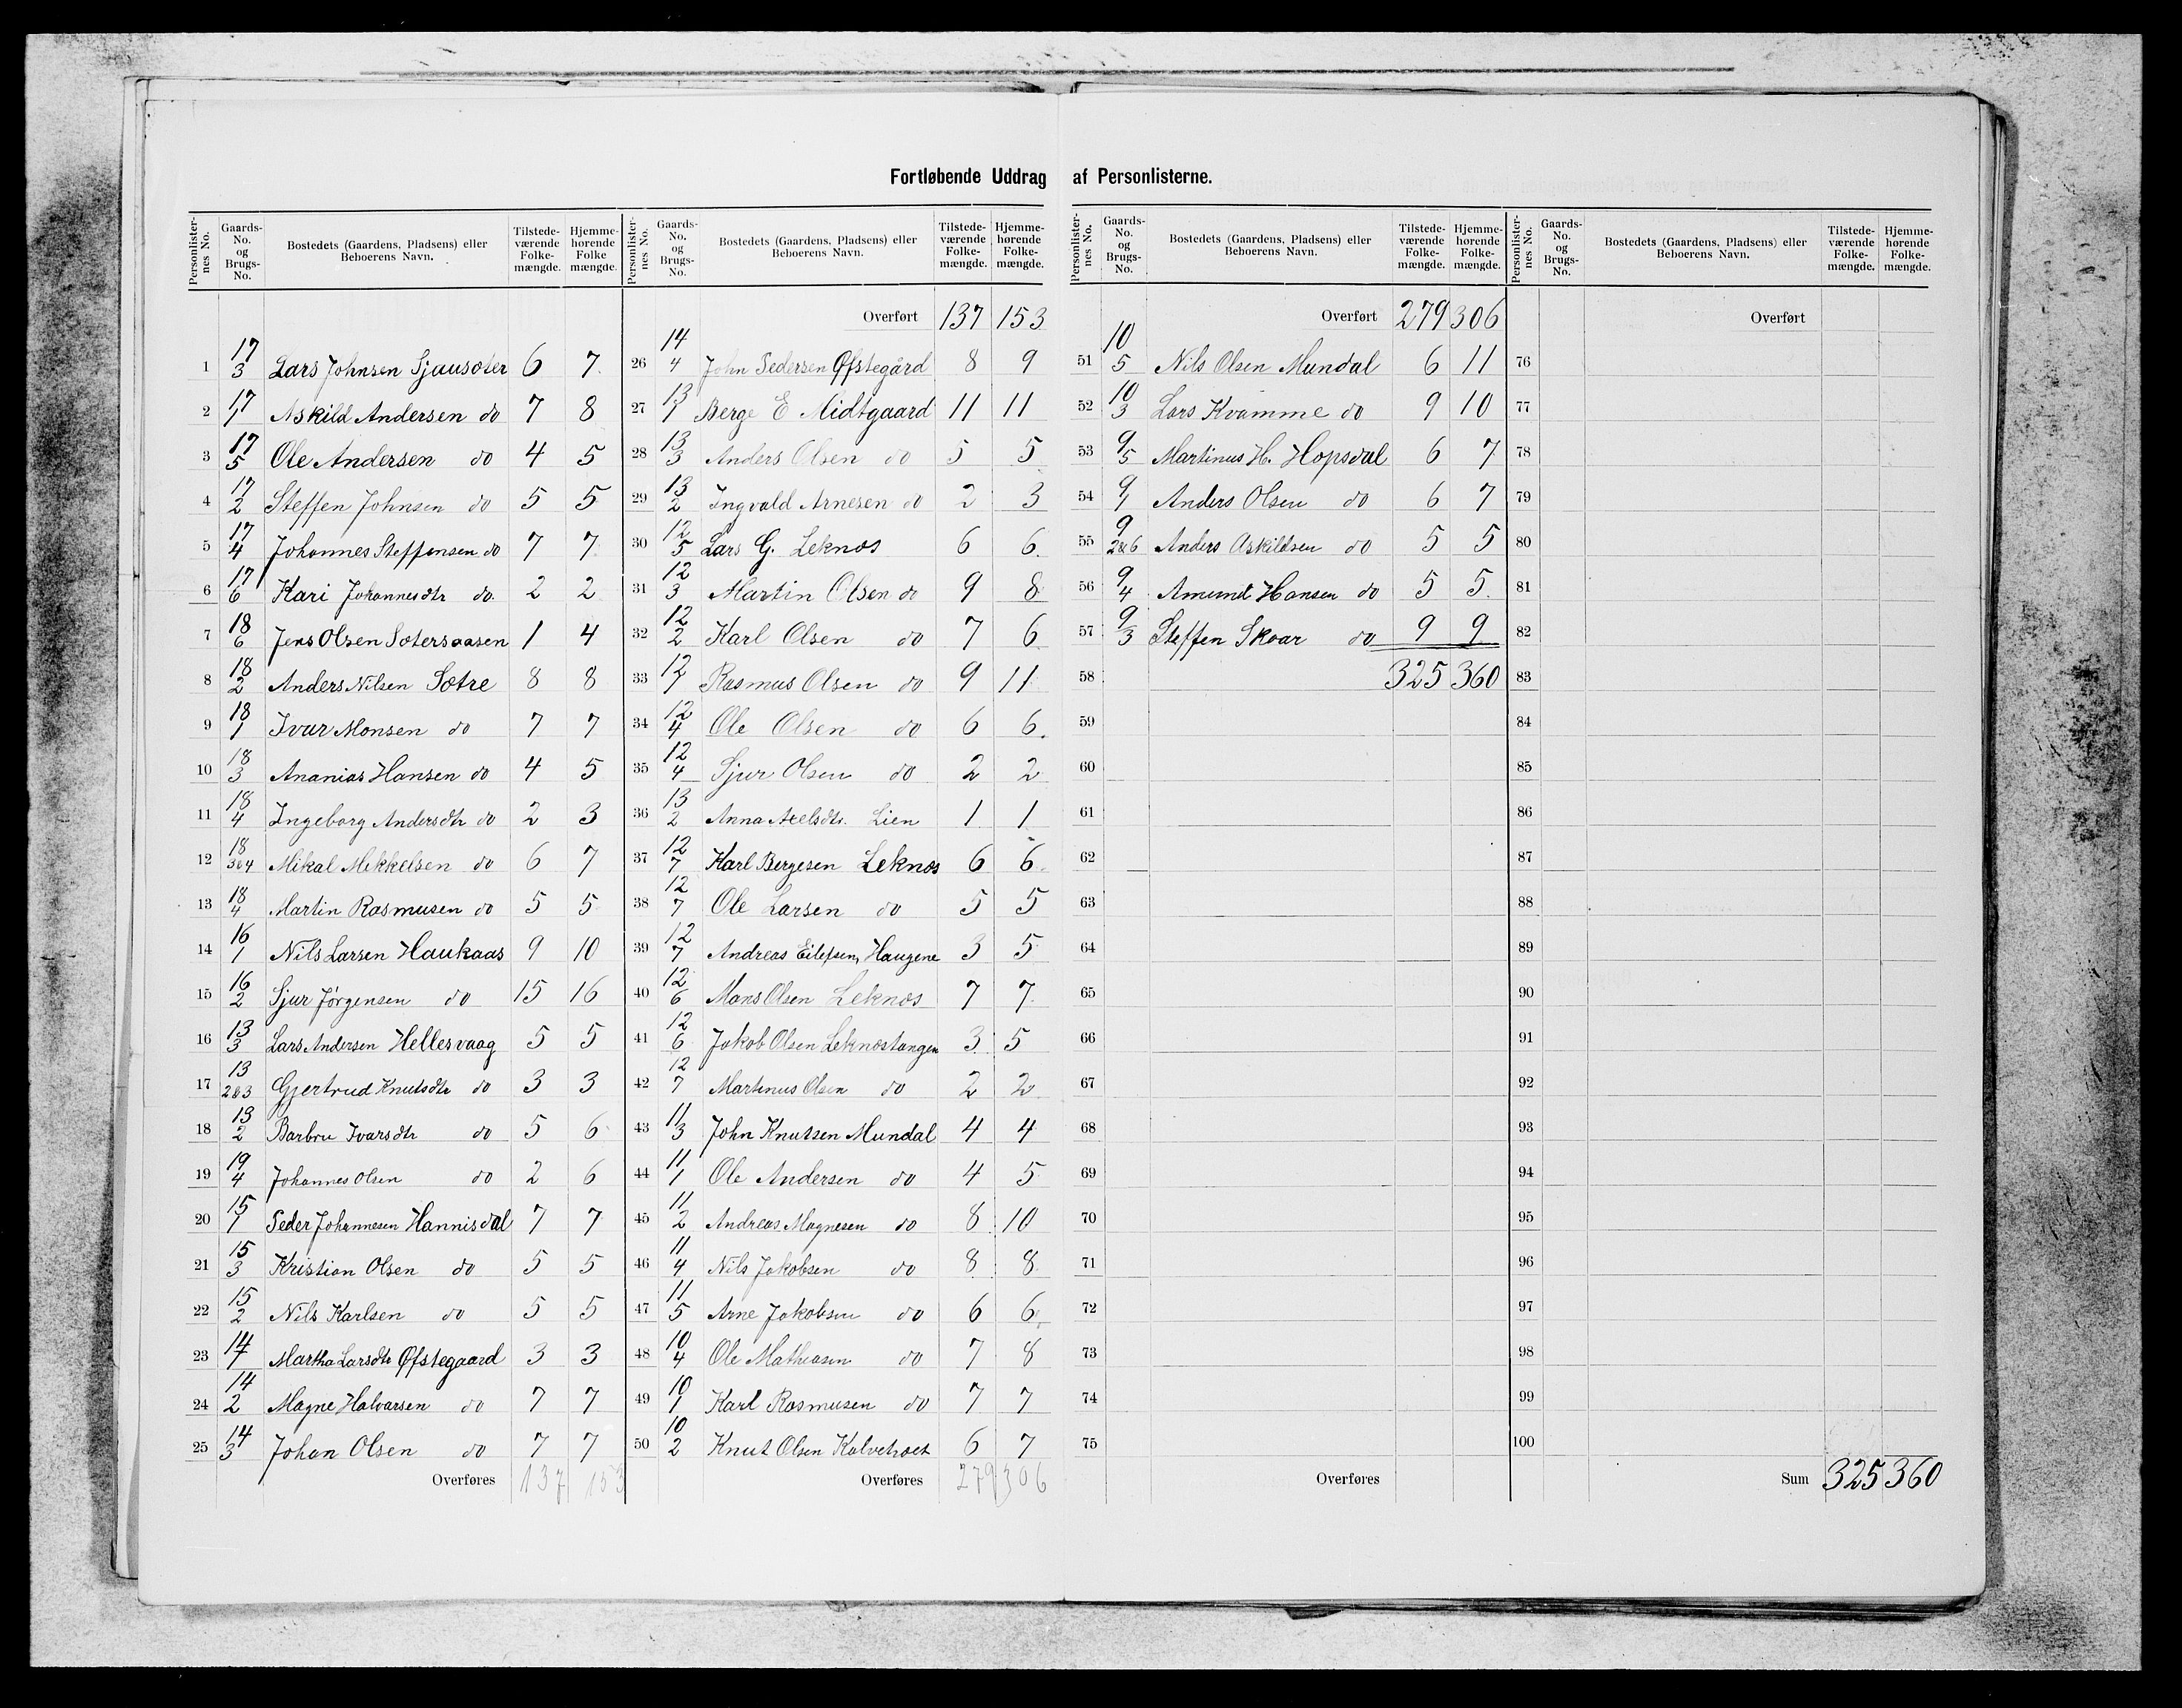 Fortløbende Uddrag af Personlisterne.
Personlisternes No. | Gaards-No. og Brugs-No. | Bostedets (Gaardens, Pladsens) eller Beboerens Navn. | Tilstedeværende Folkemængde. | Hjemmehørende Folke mængde.
1 | 17/3 | Lars Johnsen Sjausæter | 6 | 7
2 | 17/1 | Askild Andersen do | 7 | 8
3 | 17/5 | Ole Andersen do | 4 | 5
4 | 17/2 | Steffen Johnsen do | 5 | 5
5 | 17/4 | Johannes Steffensen do | 7 | 7
6 | 17/6 | Kari Johannesdtr do. | 2 | 2
7 | 18/6 | Jens Olsen Sætersaasen | 1 | 4
8 | 18/2 | Anders Nilsen Sætre | 8 | 8
9 | 18/1 | Ivar Monsen do | 7 | 7
10 | 18/3 | Ananias Hansen do | 4 | 5
11 | 18/4 | Ingeborg Andersdtr do | 2 | 3
12 | 18/3&4 | Mikal Mikkelsen do | 6 | 7
13 | 18/4 | Martin Rasmusen do | 5 | 5
14 | 16/1 | Nils Larsen Haukaas | 9 | 10
15 | 16/2 | Sjur Jørgensen do | 15 | 16
16 | 13/3 | Lars Andersen Hellesvaag | 5 | 5
17 | 13/2&3 | Gjertrud Knutsdtr do | 3 | 3
18 | 13/2 | Barbru Ivarsdtr do | 5 | 6
19 | 19/4 | Johannes Olsen do | 2 | 6
20 | 15/1 | Peder Johannesen Hannisdal | 7 | 7
21 | 15/3 | Kristian Olsen do | 5 | 5
22 | 15/2 | Nils Karlsen do | 5 | 5
23 | 14/1 | Martha Larsdtr Øfstegaard | 3 | 3
24 | 14/2 | Magne Halvarsen do | 7 | 7
25 | 14/3 | Johan Olsen do | 7 | 7
Overføres 137 153
Personlisternes No. | Gaards-No. og Brugs-No. | Bostedets (Gaardens, Pladsens) eller Beboerens Navn. | Tilstedeværende Folkemængde. | Hjemmehørende Folkemængde.
Overført 137 153
26 | 14/4 | John Pedersen Øfstegård | 8 | 9
27 | 13/1 | Berge E Midtgaard | 11 | 11
28 | 13/3 | Anders Olsen do | 5 | 5
29 | 13/2 | Ingvald Arnesen do | 2 | 3
30 | 12/5 | Lars G. Leknes | 6 | 6.
31 | 12/3 | Martin Olsen do | 9 | 8
32 | 12/2 | Karl Olsen do | 7 | 6
33 | 12/1 | Rasmus Olsen do | 9 | 11
34 | 12/4 | Ole Olsen do | 6 | 6.
35 | 12/4 | Sjur Olsen do | 2 | 2
36 | 13/2 | Anna Axelsdtr. Lien | 1 | 1
37 | 12/7 | Karl Bergesen Leknes | 6 | 6.
38 | 12/7 | Ole Larsen do | 5 | 5
39 | 12/7 | Andreas Eilefsen, Haugene | 3 | 5
40 | 12/6 | Mons Olsen Leknes | 7 | 7
41 | 12/6 | Jakob Olsen Leknestangen | 3 | 5
42 | 12/7 | Martinus Olsen do | 2 | 2
43 | 11/3 | John Knutsen Mundal | 4 | 4
44 | 11/1 | Ole Andersen do | 4 | 5
45 | 11/2 | Andreas Magnesen do | 8 | 10
46 | 11/4 | Nils Jakobsen do | 8 | 8
47 | 11/5 | Arne Jakobsen do | 6 | 6
48 | 10/4 | Ole Mathiasen do | 7 | 8
49 | 10/1 | Karl Rasmusen do | 7 | 7
50 | 10/2 | Knut Olsen Kalvetræet | 6 | 7
Overføres 279 306
Personlisternes No. | Gaards-No. og Brugs-No. | Bostedets (Gaardens, Pladsens) eller Beboerens Navn. | Tilstedeværende Folkemængde. | Hjemmehørende Folkemængde.
Overført 279 306
51 | 10/5 | Nils Olsen Mundal | 6 | 11
52 | 10/3 | Lars Kvamme do | 9 | 10
53 | 9/5 | Martinus H. Hopsdal | 6 | 7
54 | 9/1 | Anders Olsen do | 6 | 7
55 | 9/2&6 | Anders Askildsen do | 5 | 5
56 | 9/4 | Amund Hansen do | 5 | 5.
57 | 9/3 | Steffen Skaar do | 9 | 9
58 325 360
59
60
61
62
63
64
65
66
67
68
69
70
71
72
73
74
75
Overføres
Personlisternes No. | Gaards-No. og Brugs-No. | Bostedets (Gaardens, Pladsens) eller Beboerens Navn. | Tilstedeværende Folkemængde. | Hjemmehørende Folkemængde.
Overført
76
77
78
79
80
81
82
83
84
85
86
87
88
89
90
91
92
93
94
95
96
97
98
99
100
Sum 325 360